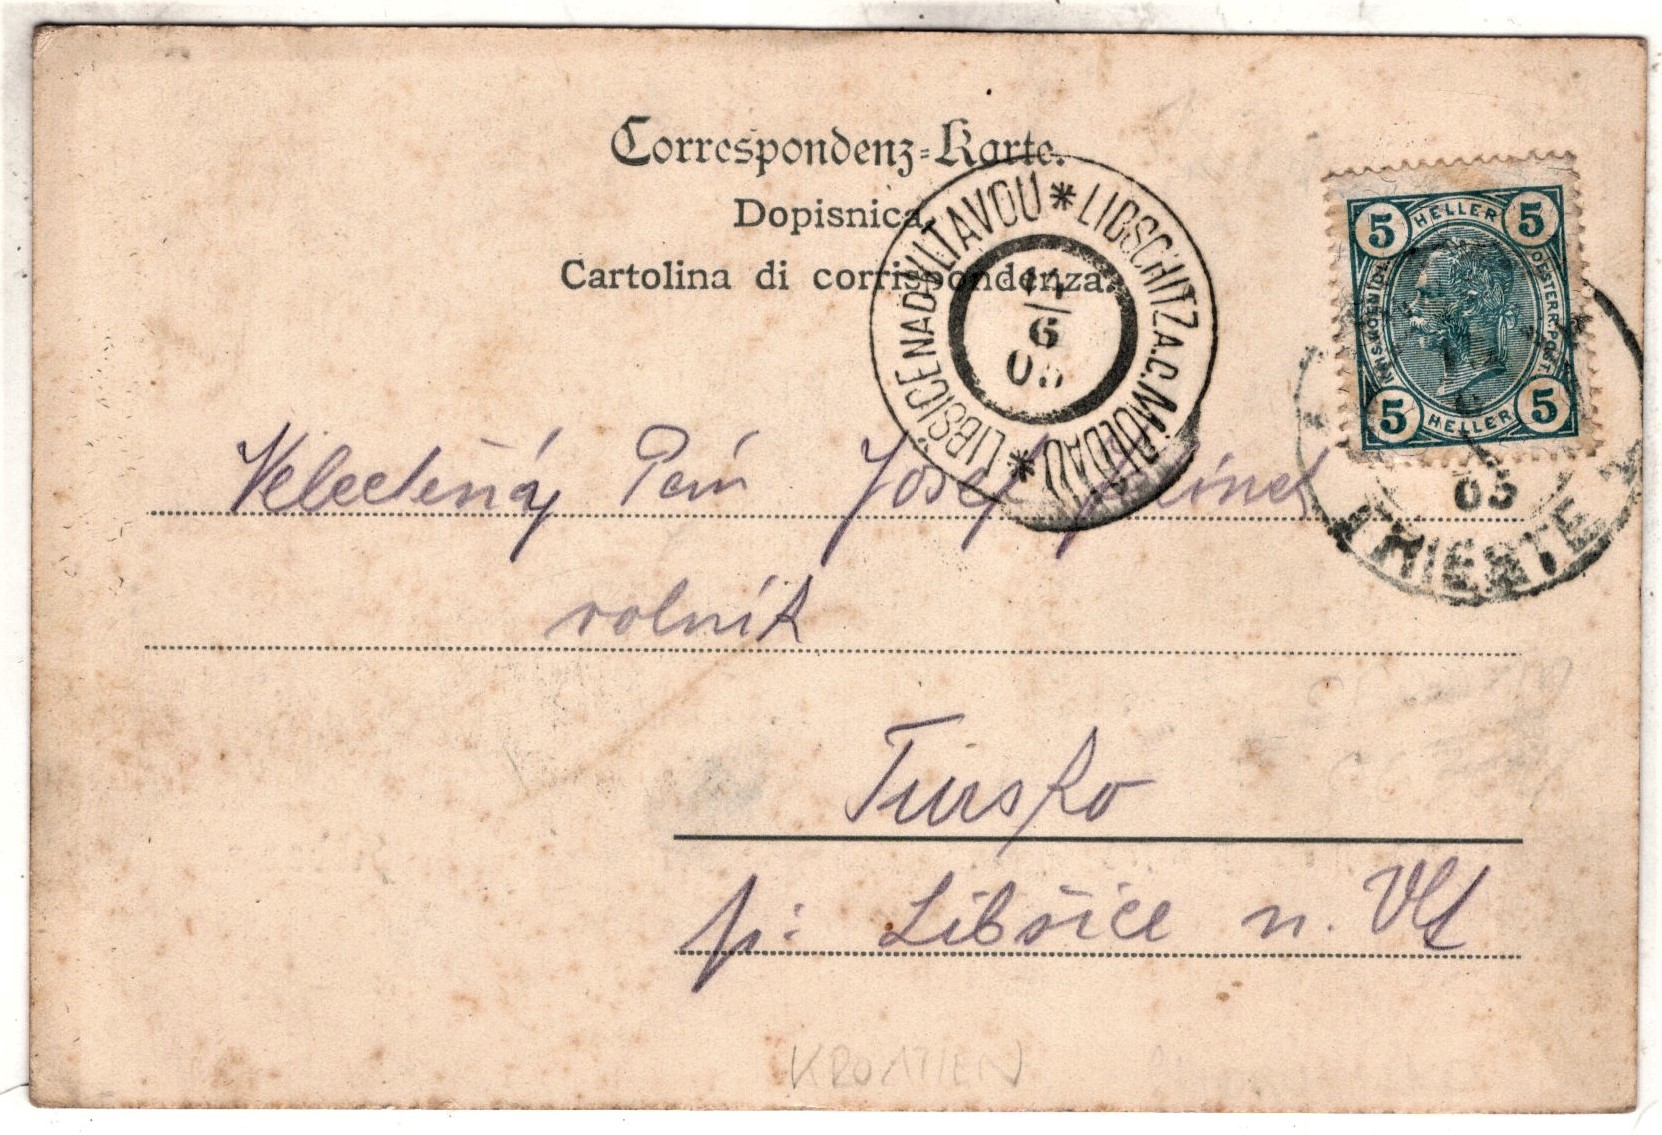 Correspondenz-Karte.
Dopisnica
Cartolina di corrispondenza.
LIBŠICE NAD VLTAVOU * LIBSCHITZ A.D. MOLDAU *
14
6
05
5 HELLER 5
KAIS. KÖNIGL. OESTERR. POST.
5 HELLER 5
05
TRIESTE
Velectěný Pán Josef
rolník
Tursko
p: Libšice n. Vlt
KROATIEN